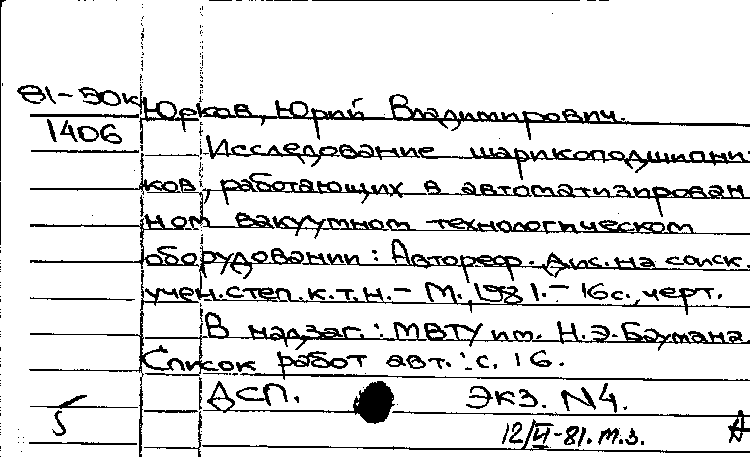 81-30к Юрков, Юрий Владимирович.
1406 Исследование шарикоподшипни-
ков, работающих в автоматизирован
ном вакуумном технологическом
оборудовании: Автореф. дис. на соиск.
учен. степ. к.т.н. - М., 1981. - 16с., черт.
В надзаг.: МВТУ им. Н.Э. Баумана.
Список работ авт.: с. 16.
ДСП. Экз. N4.
5 12/VI-81. т.з.